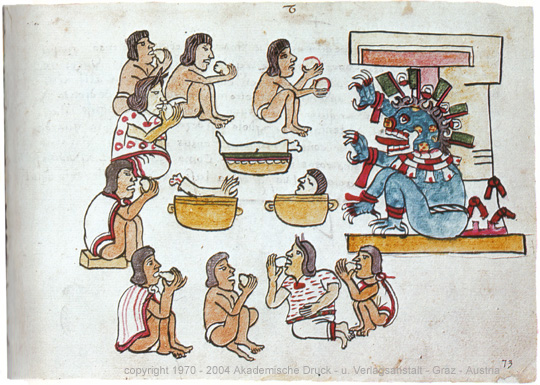 73
copyright 1970 - 2004 Akademische Druck - u. Verlagsanstalt - Graz - Austria